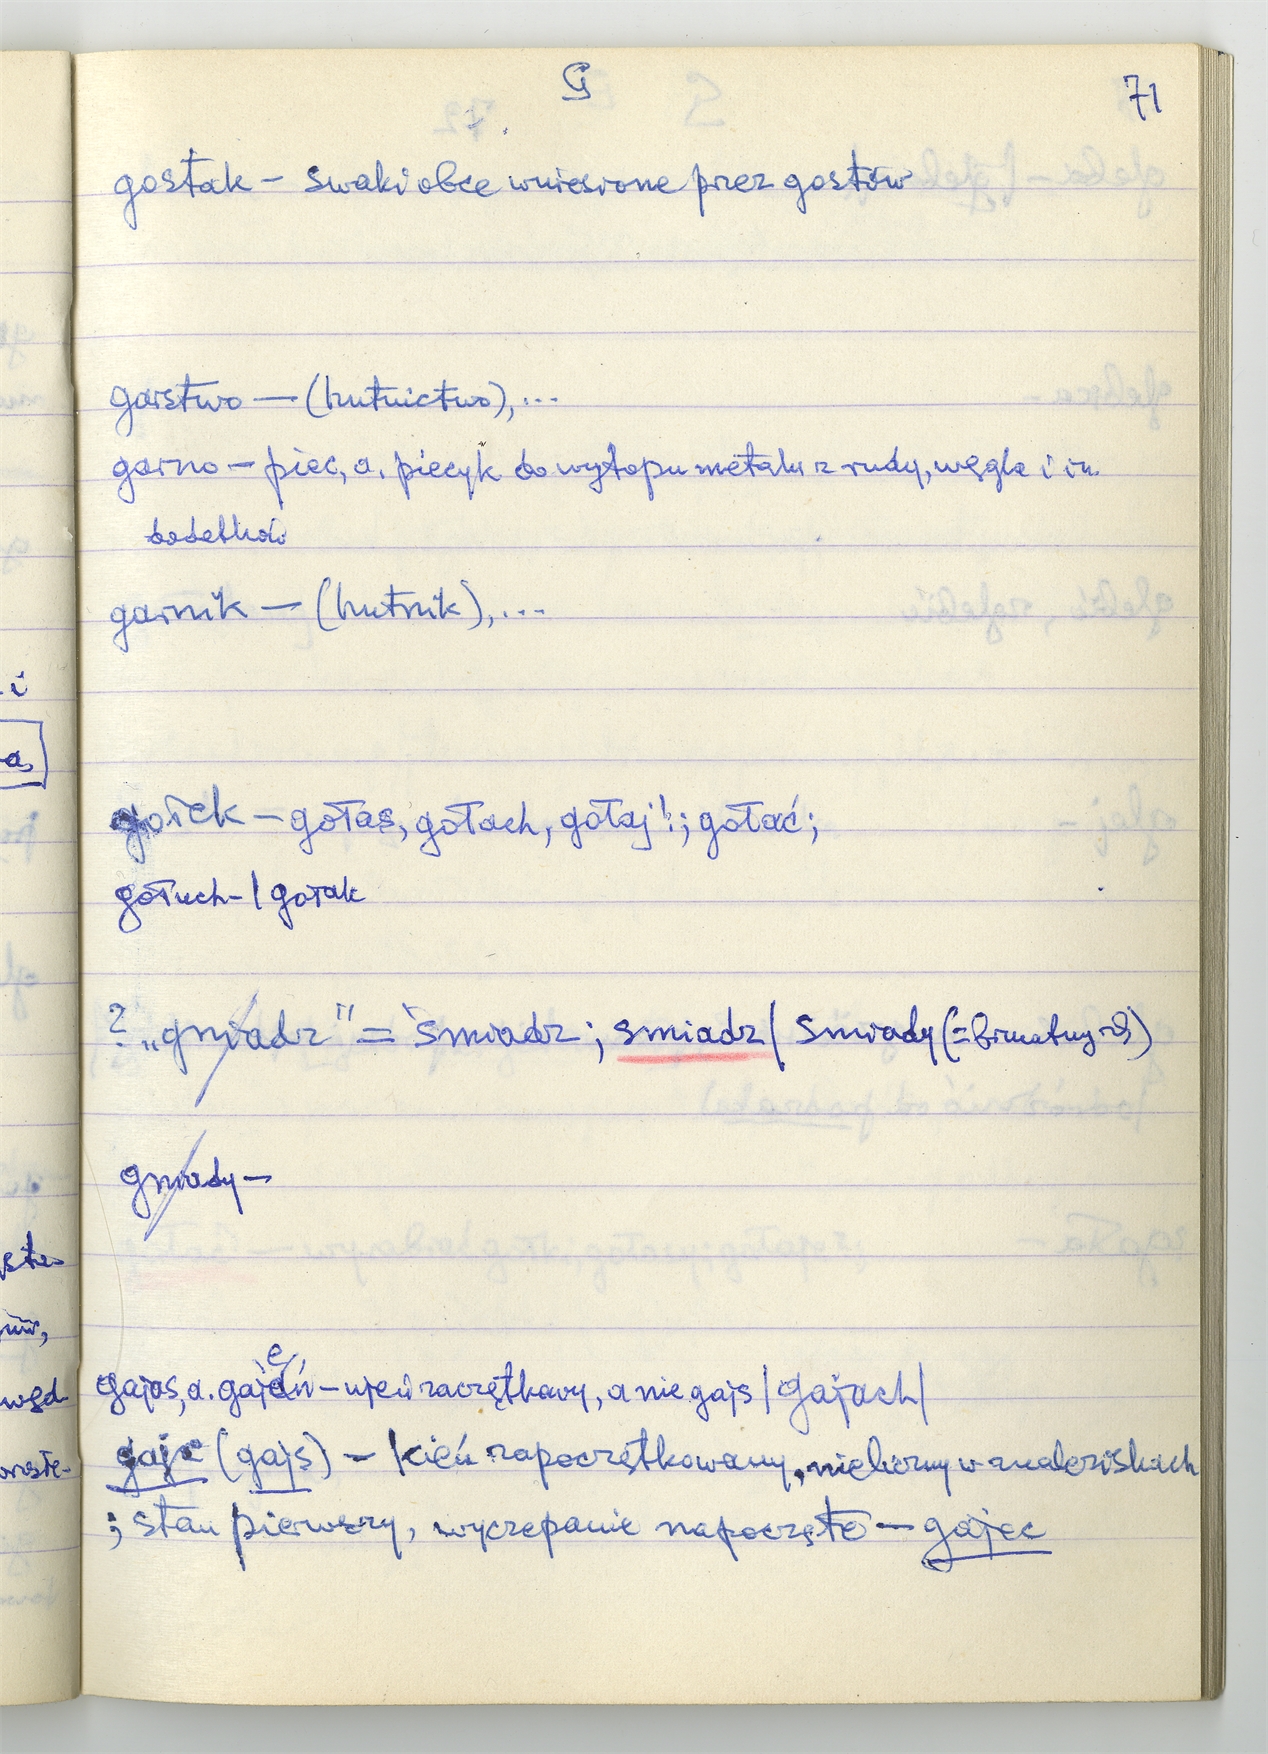 G
71
gostak – swaki obce wniesione przez gostów
garstwo — (hutnictwo), ...
garno – piec, a. piecyk do wytopu metalu z rudy, węgla i in.
dodatków
garnik — (hutnik), ...
gołek – gołas, gołach, gołaj!; gołać;
gołuch – / gołak
? „gniadz" = śmiadz; smiadz / smiady (= brunatny
gniady –
gajos, a. gajeń – zaczątkowy, a nie gajs / gajach /
gajc (gajs) – / kień zapoczątkowany, nieliczny w znaleziskach
; stan pierwszy, wyczepanie napoczęte – gajec